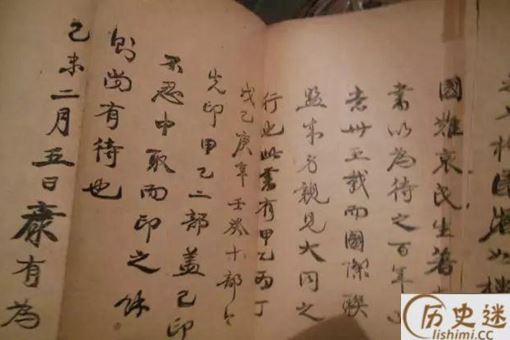 國難哀民生著大
書以為待之百年
意卅五載而國際聯
盟成身親見大同之
行也此書有甲乙丙丁
戊己庚辛壬癸十部今
先印甲乙二部蓋已印
不忍中取而印之餘
則尚有待也
己未二月五日康有為
历史迷
lishimi.cc